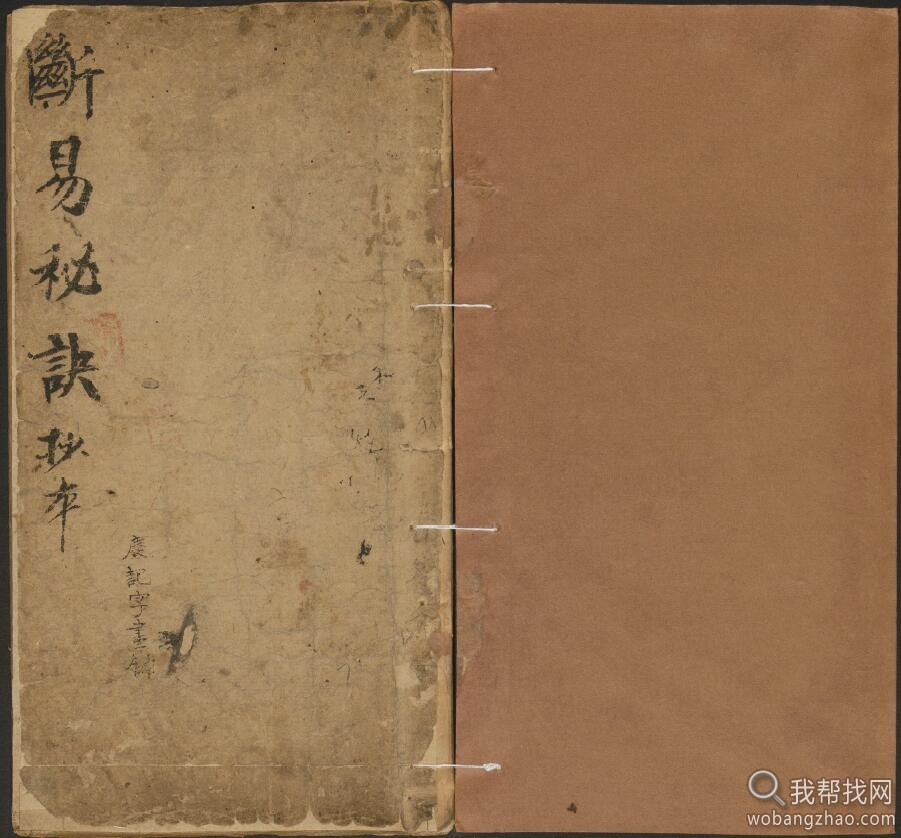 斷易秘訣抄本
慶記字畫舖
我帮找网
wobangzhao.com